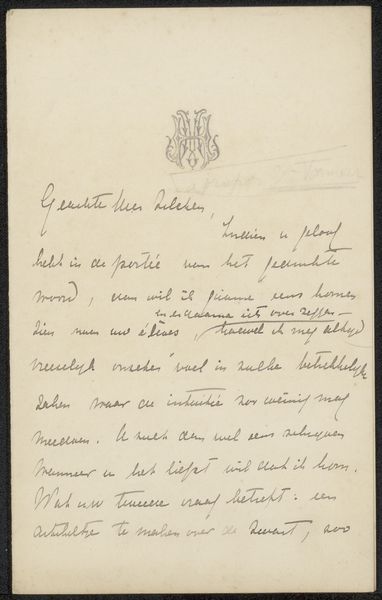 Geachte Heer Zilcken,
Indien u geloof
hebt in de portée van het gedrukte
woord, dan wil ik gaarne eens komen
en er daarna iets over zeggen
zien naar uw élèves, hoewel ik mij altijd
vreeselijk onzeker voel in zulke betrekkelijke
zaken waar de intuitie zoo weinig mag
meedoen. U zult dan wel eens schrijven
wanneer u het liefst wil dat ik kom.
Wat uw tweede vraag betreft: een
artikeltje te maken over de Zwart, zoo